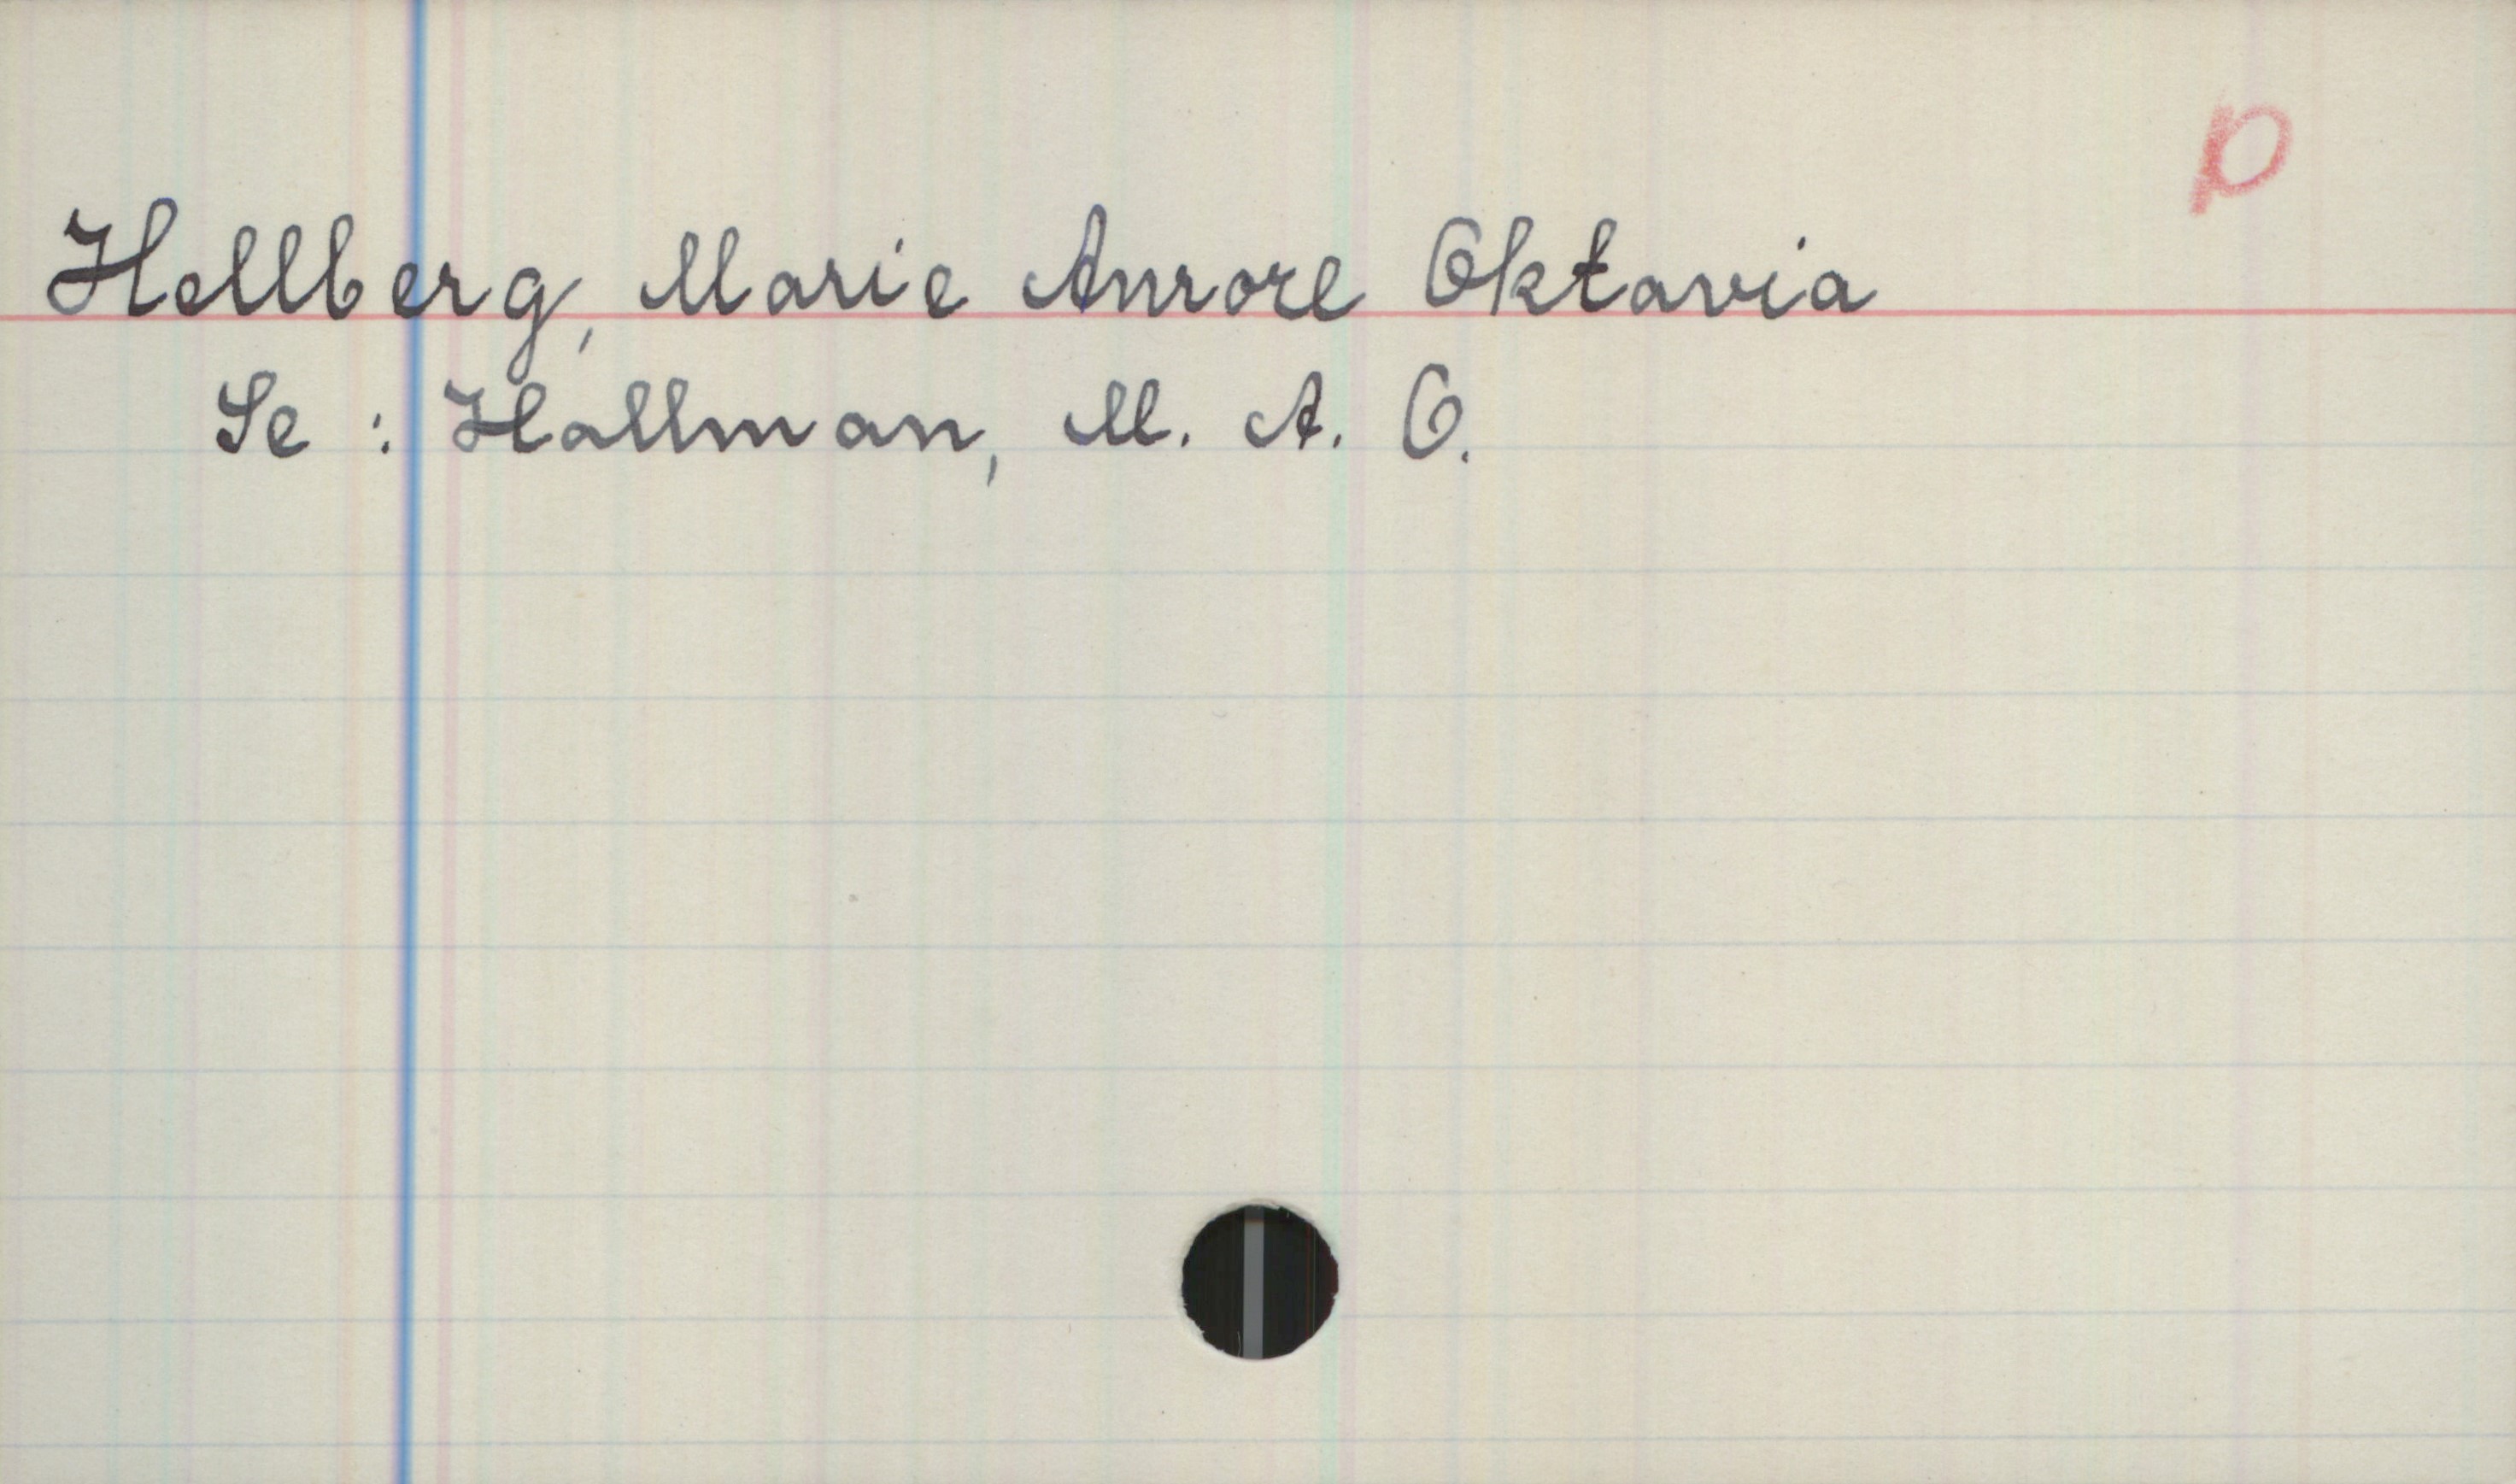 p
Hallberg, Marie Aurore Oktavia
Se : Hallman, M. A. O.